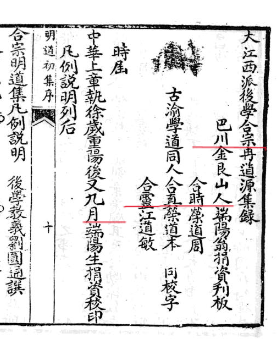 大江西派後學合宗冉道源集錄
巴川金艮山人端陽翁捐資刋板
合時榮道周
古渝學道同人合真榮道本 仝校字
合靈江道敏
時屆
中華上章執徐歲重陽後又九月端陽生捐資校印
凡例説明列后
明道初集序
十
合宗明道集凡例説明
後學教義劉國通譔